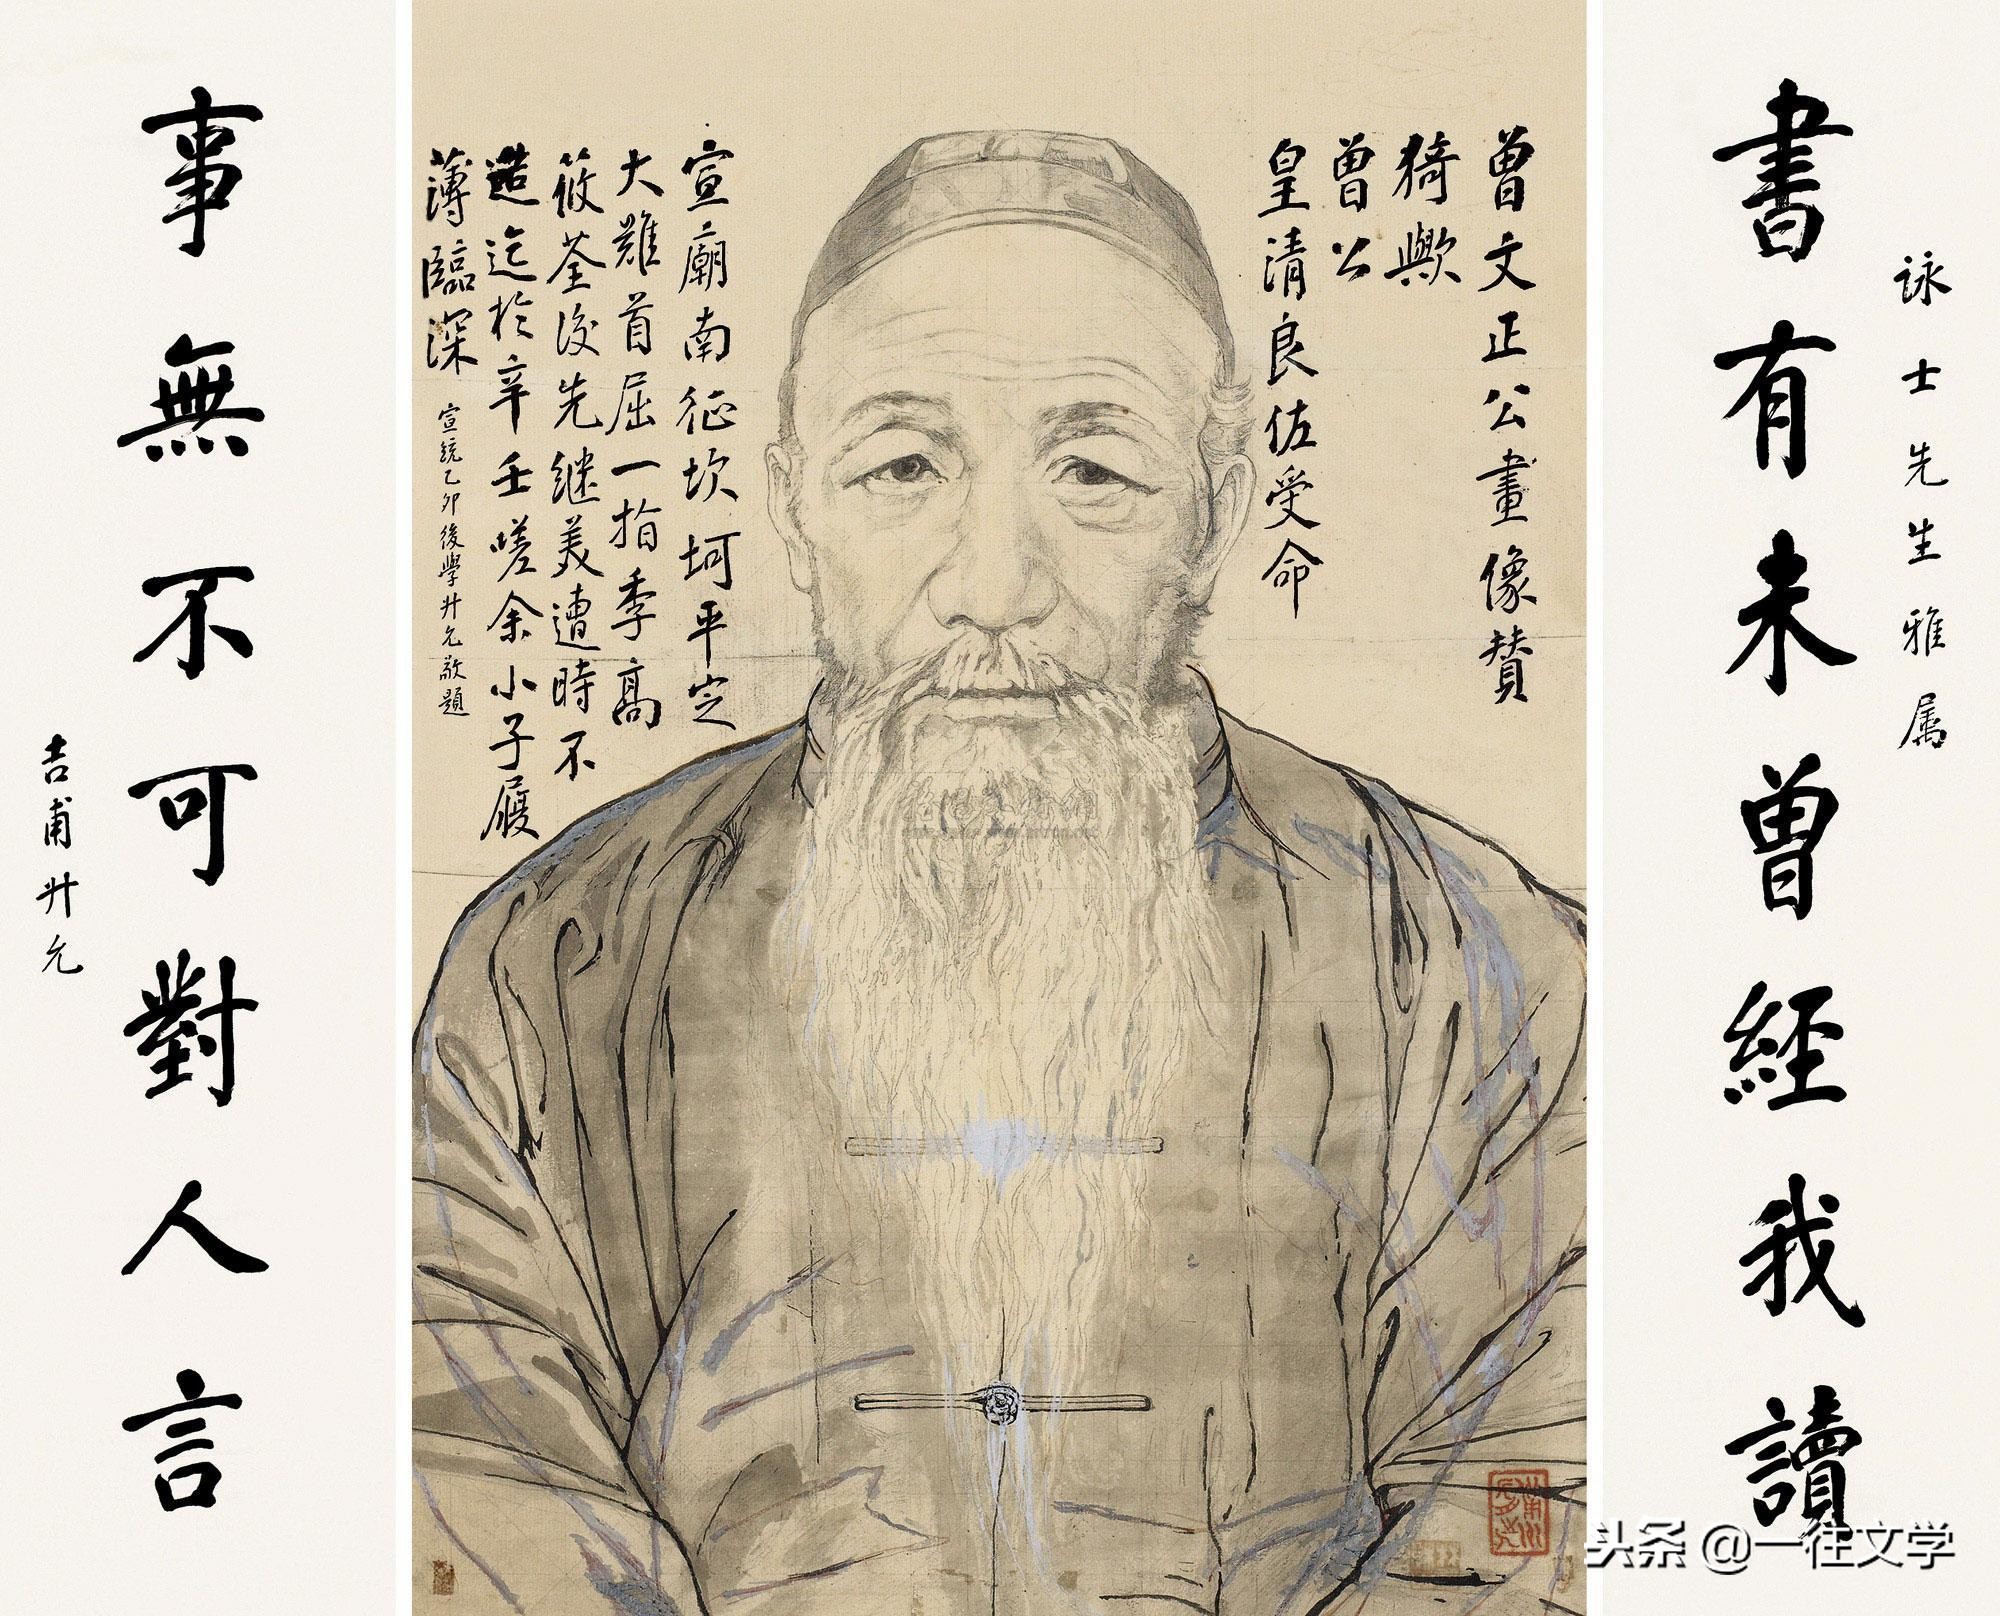 詠士先生雅属
書有未曾經我讀
曾文正公畫像贊
猗歟
曾公
皇清良佐受命
宣廟南征坎坷平定
大難首屈一指季高
筱荃後先继美遭時不
造迄於辛壬嗟余小子履
薄臨深
宣統乙卯後學升允敬題
事無不可對人言
吉甫升允
头条 @一往文学